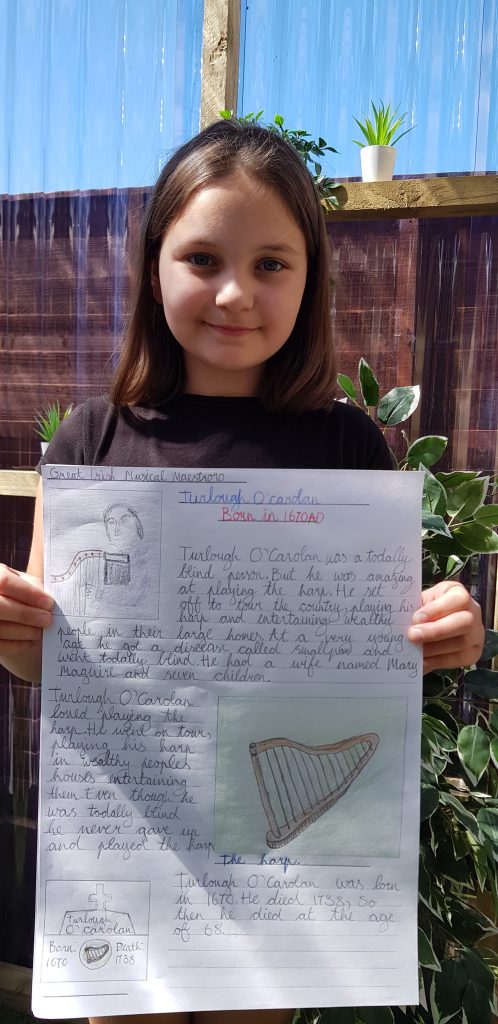 Great Irish Musical Maestroro
Turlough O'carolan
Born in 1670AD
Turlough O'Carolan was a todally
blind person. But he was amazing
at playing the harp. He set
off to tour the country, playing his
harp and entertaining wealthy
people in their large homes. At a very young
age he got a disease called smallpox and
went todally blind. He had a wife named Mary
Maguire and seven children.
Turlough O'Carolan
loved playing the
harp. He went on tours
playing his harp
in wealthy peoples
houses entertaining
them. Even though he
was todally blind
he never gave up
and played the harp
The harp.
Turlough O'Carolan was born
in 1670. He died 1738, So
then he died at the age
of 68.
Turlough
O'Carolan
Born: Death:
1670 1738